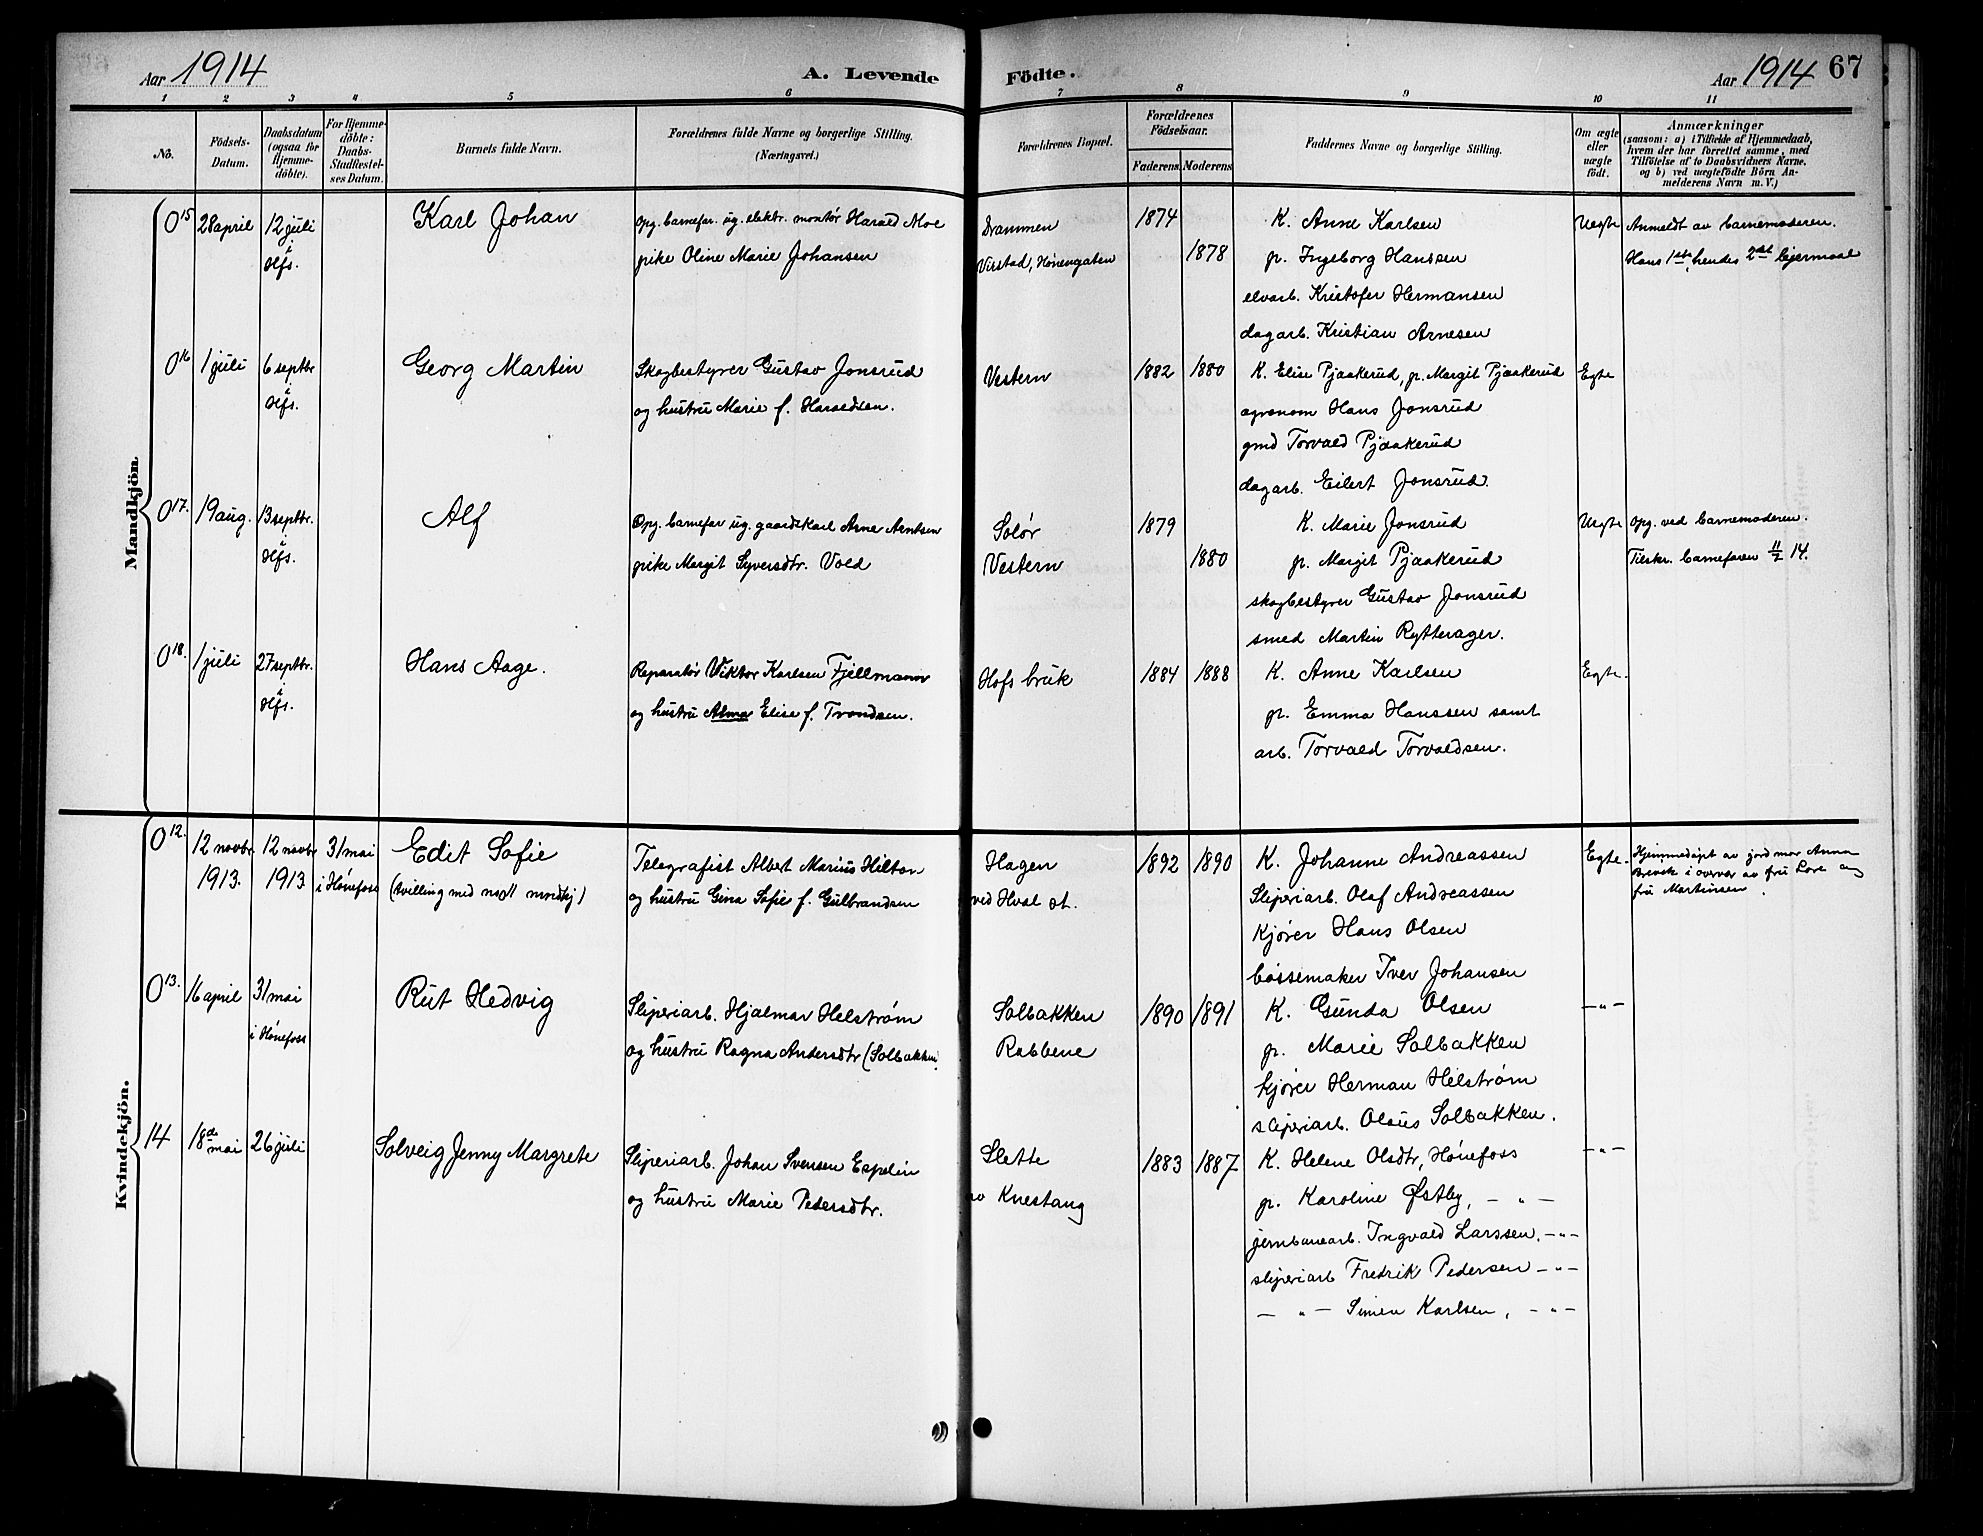 Aar 1914
A. Levende
Födte.
Aar 1914 67
1 2 3 4 5 6 7 8 9 10 11
No.
Födsels-
Datum.
Daabsdatum
(ogsaa for
Hjemme-
döbte).
For Hjemme-
döbte:
Daabs-
Stadfæstel-
ses Datum.
Barnets fulde Navn.
Forældrenes fulde Navne og borgerlige Stilling.
(Næringsvei.)
Forældrenes Bopæl.
Forældrenes
Födselsaar.
Faderens. Moderens
Faddernes Navne og borgerlige Stilling.
Om ægte
eller
uægte
födt.
Anmærkninger
(saasom: a) i Tilfælde af Hjemmedaab,
hvem der har forrettet samme, med
Tilföielse af to Daabsvidners Navne,
og b) ved uægtefödte Börn An-
melderens Navn m. V.)
Mandkjön.
O 15 28 april 12 juli
i
Hfs.
Karl Johan
Opg. barnefar. ug. elektr. montør Harald Moe
pike Oline Marie Johansen
Drammen
Virstad, Hønengaten
1874
1878
K. Anne Karlsen
p. Ingeborg Hanssen
elvarb. Kristofer Hermansen
dagarb. Kristian Arnesen
Uegte
Anmeldt av barnemoderen.
Hans 1ste, hendes 2det leiermaal
O 16 1 juli 6 septbr
i
Hfs.
Georg Martin
Skogbestyrer Gustav Jonsrud
og hustru Marie f. Haraldsen.
Vestern
1882 1880
K. Elise Pjaakerud, p. Margit Pjaakerud
agronom Hans Jonsrud
gmd Torvald Pjaakerud
dagarb. Eilert Jonsrud.
Egte
O 17. 19 aug. 13 septbr.
i
Hfs.
Alf
Opg. barnefar ug. gaardskarl Arne Arntsen
pike Margit Syversdtr. Vold
Solør
Vestern
1879
1880
K. Marie Jonsrud
p. Margit Pjaakerud
skogbestyrer Gustav Jonsrud
smed Martin Rytterager.
Uegte
Opg. ved barnemoderen.
Tilskr. barnefaren 11/7 14.
O 18. 1 juli 27 septbr.
i
Hfs.
Hans Aage.
Reparatør Viktor Karlsen Fjellmann
og hustru Alma Elise f. Trondsen.
Hofs bruk
1884 1888
K. Anne Karlsen
p. Emma Hanssen samt
arb. Torvald Torvaldsen.
Egte.
Kvindekjön.
O 12. 12 novbr. 12 novbr 31 mai
1913. 1913 i Hønefoss
Edit Sofie
(tvilling med no 11 mndkj)
Telegrafist Albert Marius Hilton
og hustru Gina Sofie f. Gulbrandsen
Hagen
ved Hval st.
1892 1890
K. Johanne Andreassen
Sliperiarb. Olaf Andreassen
Kjører Hans Olsen
bøssemaker Iver Johansen
Egte.
Hjemmedøpt av jordmor Anna
Brevik i overvær av fru Lore og
fru Martinsen.
O 13. 16 april 31 mai
i Hønefoss
Rut Hedvig
Sliperiarb. Hjalmar Helstrøm
og hustru Ragna Andersdtr (Solbakken)
Solbakken
Rabbene
1890 1891
K. Gunda Olsen
p. Marie Solbakken
kjører Herman Helstrøm
sliperiarb. Olaus Solbakken.
— „ —
14 18de mai 26 juli
Solveig Jenny Margrete
Sliperiarb. Johan Svensen Espelin
og hustru Marie Pedersdtr.
Slette
av Knestang
1883 1887
K. Helene Olsdtr, Hønefoss
p. Karoline Østby, — „ —
jernbanearb. Ingvald Larssen. — „ —
sliperiarb Fredrik Pedersen — „ —
— „ — Simen Karlsen, — „ —
— „ —